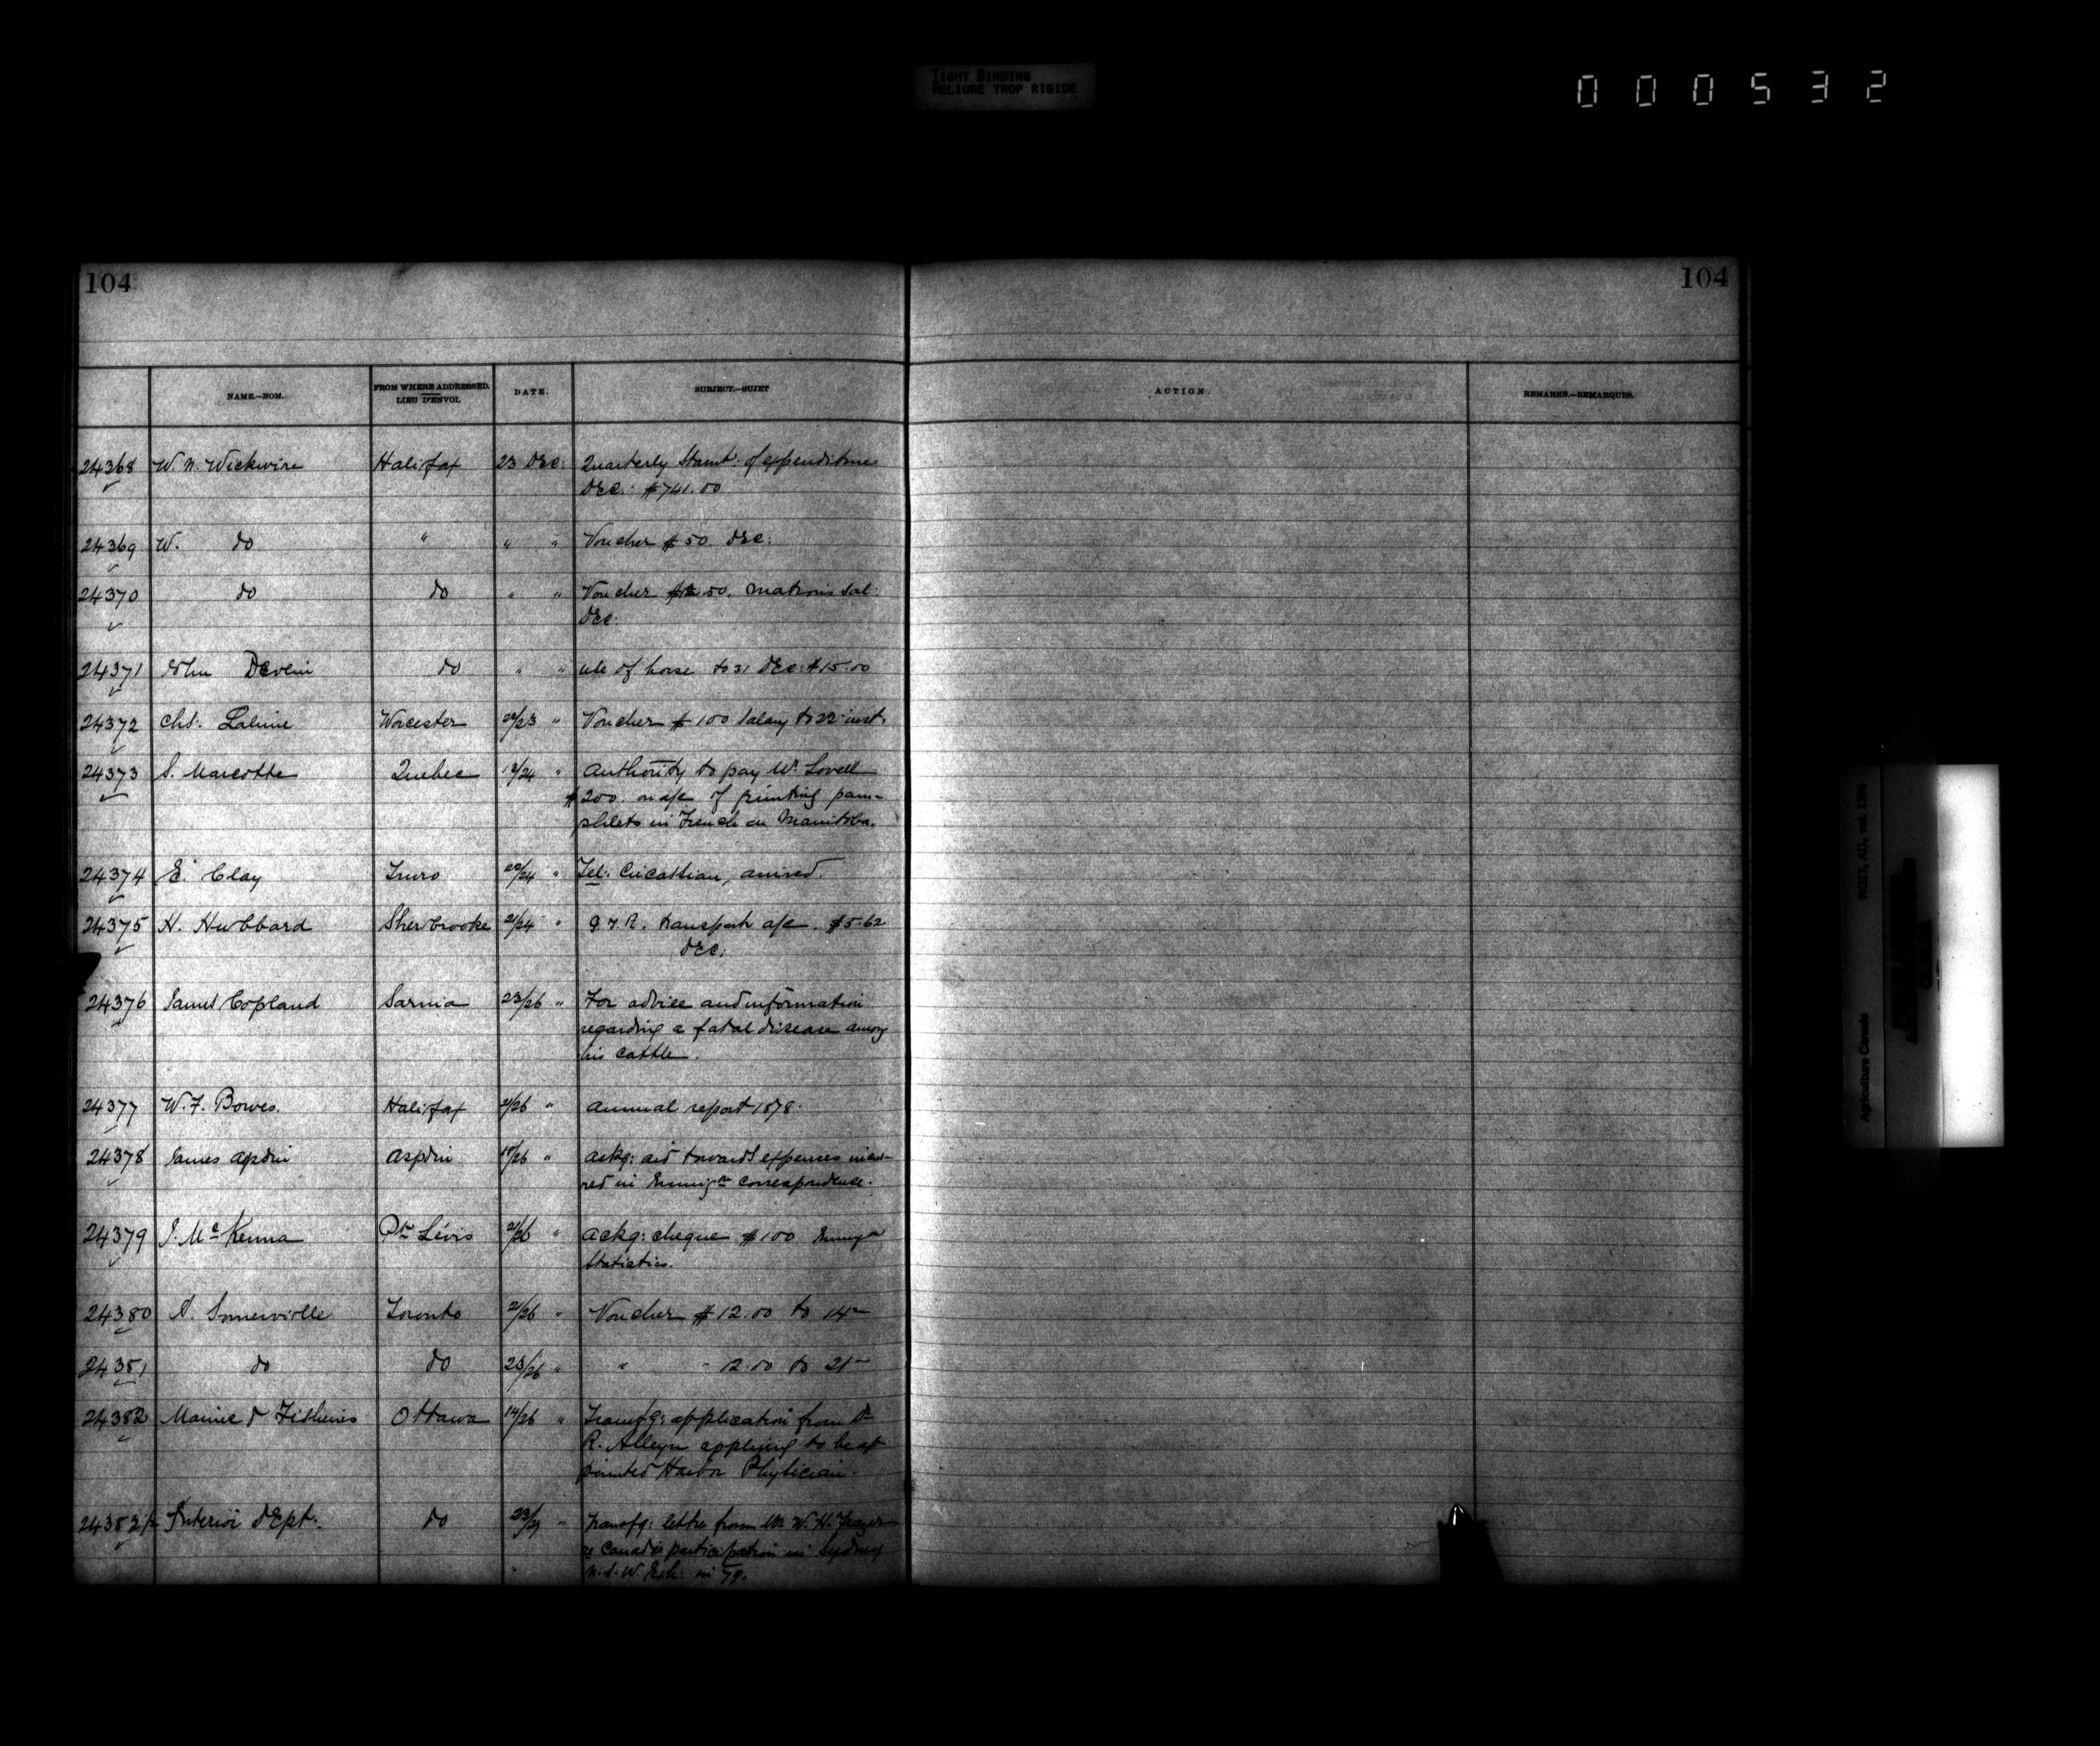 TIGHT BINDING
RELIURE TROP RIGIDE
000532
104
104
NAME.—NOM.
FROM WHERE ADDRESSED.
LIEU D'ENVOI.
DATE.
SUBJECT.—SUJET
ACTION.
REMARKS.—REMARQUES.
24368 W. N. Wickwire Halifax 23 Dec: Quarterly Stamt: of expenditure
Dec: $741.00
24369 W. do " " " Voucher $50. Dec:
24370 do do " " Voucher 50. matrons Sal:
Dec:
24371 John Devlin do " " use of horse to 31 Dec: $15.00
24372 Chs: Lalime Worcester 22/23 " Voucher $100 Salary to 22 inst.
24373 S. Marcotte Quebec /24 " Authority to pay Mr. Lovell
$200. on a/c of printing pam-
phlets in French on Manitoba.
24374 E. Clay Truro 22/24 " Tel: Circassian, arrived
24375 H. Hubbard Sherbrooke 21/24 " G.T.R. transport a/c. $5.62
Dec:
24376 James Copland Sarnia 23/26 " For advice and information
regarding a fatal disease among
his cattle.
24377 W. F. Bowes. Halifax 21/26 " Annual report 1878.
24378 James Aspdin Aspdin 18/26 " Ackg: aid towards expenses incur-
red in Immign correspondence.
24379 J. McKenna Pt Lévis 21/26 " Ackg: cheque $100 Immign
Statistics.
24380 A. Somerville Toronto 21/26 " Voucher $12.00 to 14
24381 do do 23/26 " " " 12.00 to 21
24382 Marine & Fisheries Ottawa 14/26 " Transfg: application from Dr
R. Alleyn applying to be ap
pointed Harbor Physician.
24382½ Interior Dept: do 23/27 " Transfg: letter from Mr W. H. Frazer
re Canada's participation in Sydney
N.S.W. Exh: in 79.
Agriculture Canada RG17, AII, vol. 1396